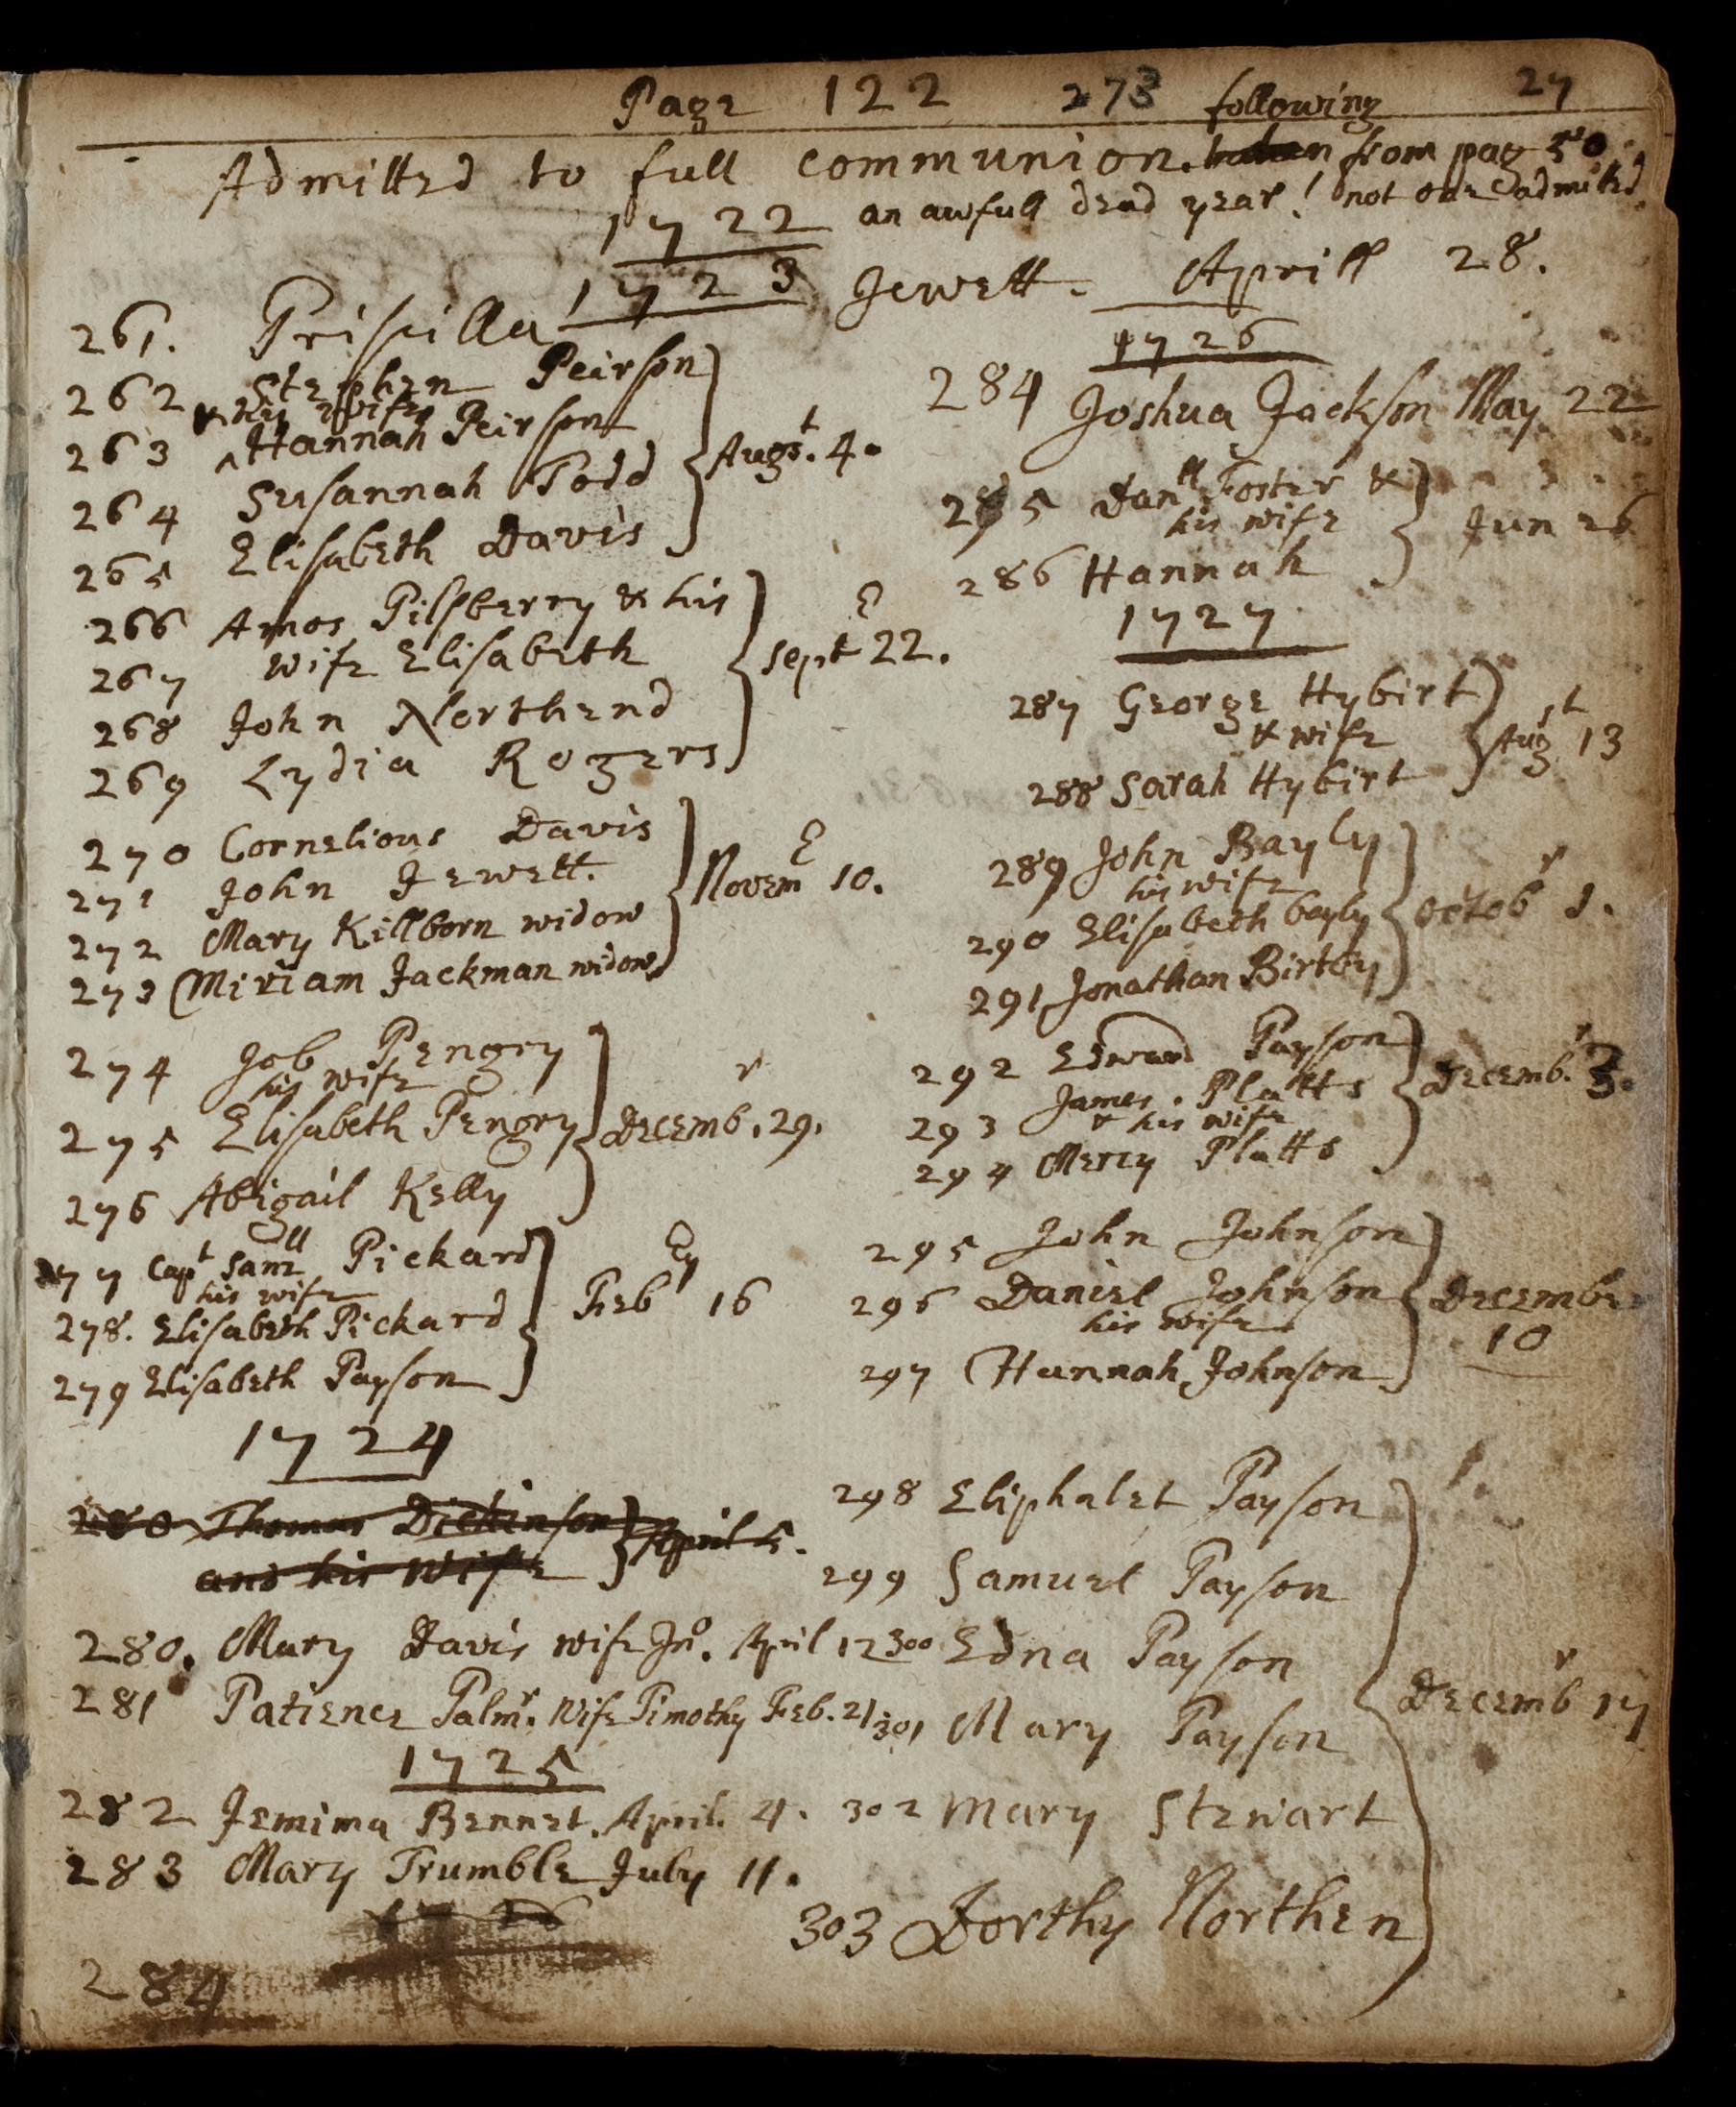 Page 122 273 following 27
Admitted to full communion. from pag 50
1722 an awfull dead year! not one admitted.
1723
261. Priscilla Jewett. Aprill 28.
262 Stephen Peirson
& his wife
263 ^ Hannah Peirson
264 Susannah Todd
265 Elisabeth Davis
Augst. 4.
266 Amos Pilsberry & his
267 wife Elisabeth
268 John Northend
269 Lydia Rogers
Sept 22.
270 Cornelious Davis
271 John Jewett.
272 Mary Killborn widow
273 Miriam Jackman widow
Novem 10.
274 Job Pengry
his wife
275 Elisabeth Pengry
276 Abigail Kelly
Decembr. 29.
277 Capt Samll Pickard
his wife
278. Elisabeth Pickard
279 Elisabeth Payson
Feb 16
1724
280 Thomas Dickinson
and his Wife
April 5.
280. Mary Davis wife Jno. April 12
281 Patience Palmr. Wife Timothy Feb. 21
1725
282 Jemima Bennet. April. 4.
283 Mary Trumble July 11.
1726
284
1726
284 Joshua Jackson May 22
285 Danll Foster &
his wife
286 Hannah
Jun 26
1727
287 George Hybirt
& wife
288 Sarah Hybirt
Augst 13
289 John Bayly
his wife
290 Elisabeth bayly
291 Jonathan Birtby
Octobr 1.
292 Edward Payson
293 James. Platts
& his wife
294 Mercy Platts
Decembr. 3.
295 John Johnson
296 Daniel Johnson
his wife
297 Hannah Johnson
December
10
298 Eliphalet Payson
299 Samuel Payson
300 Edna Payson
301 Mary Payson
302 Mary Stewart
303 Dorthy Northen
Decembr 17